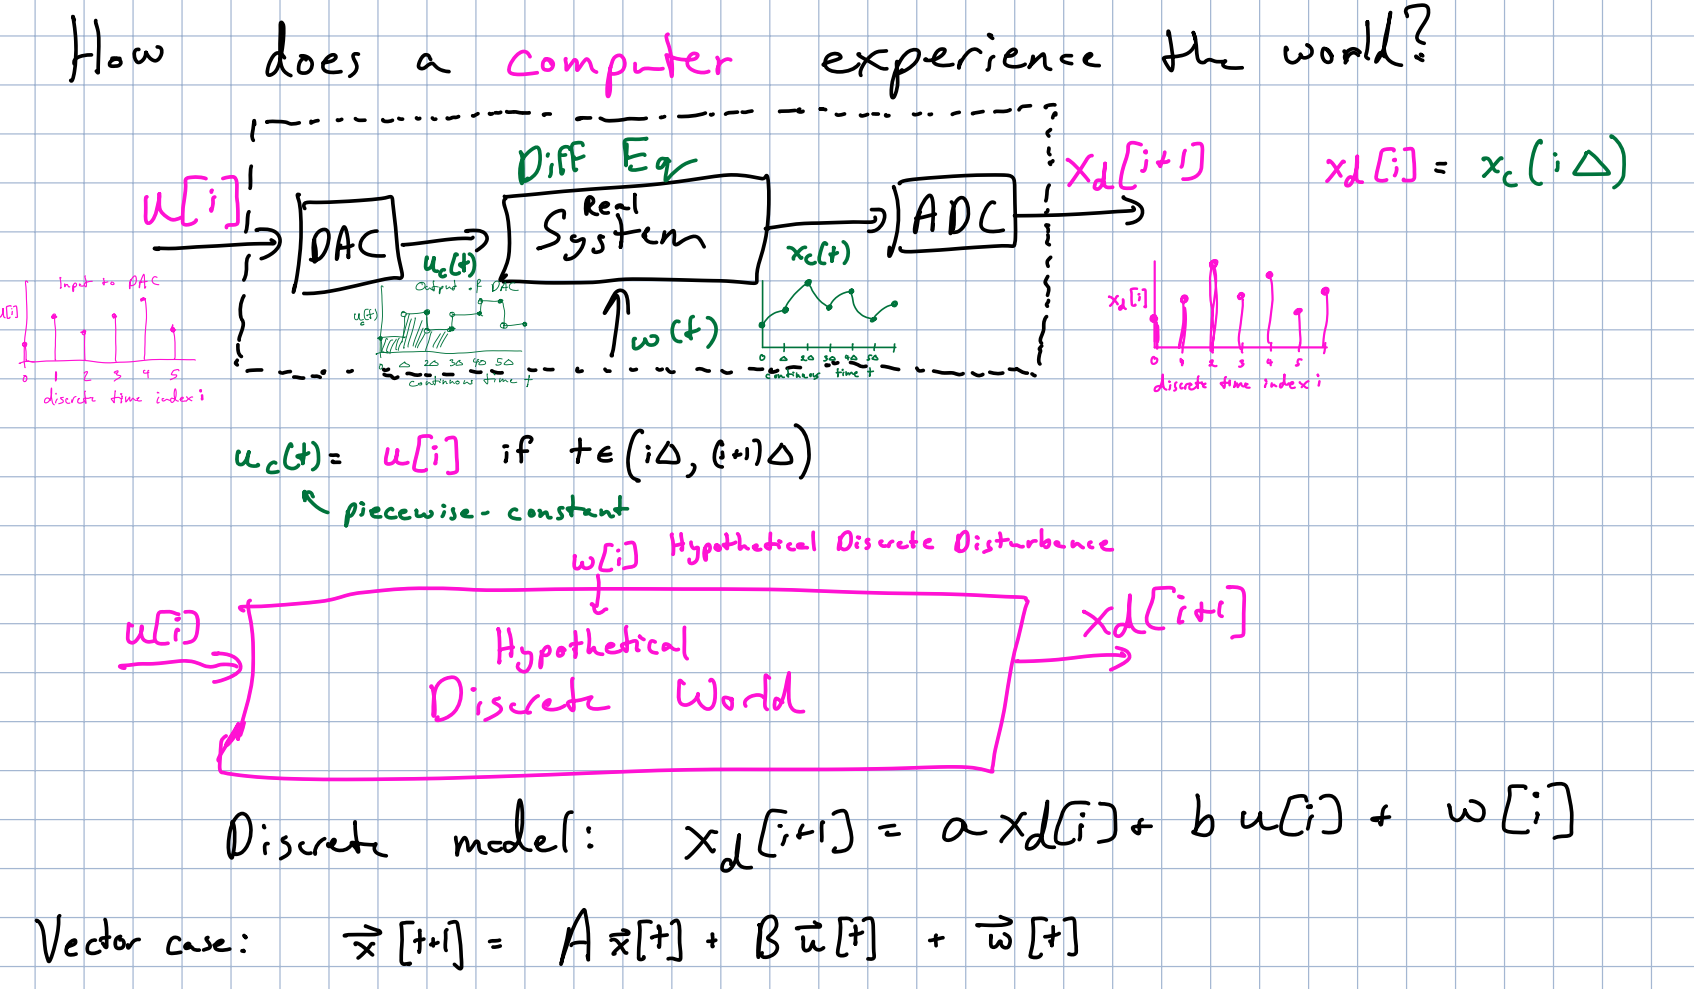 How does a computer experience the world?
Diff Eq
u[i]
DAC
u_c(t)
Real
System
w(t)
x_c(t)
ADC
x_d[i+1]
x_d[i] = x_c(iΔ)
Input to DAC
u[i]
0 1 2 3 4 5
discrete time index i
Output of DAC
u_c(t)
Δ 2Δ 3Δ 4Δ 5Δ
continuous time t
0 Δ 2Δ 3Δ 4Δ 5Δ
continuous time t
x_d[i]
0 1 2 3 4 5
discrete time index i
u_c(t) = u[i] if t ∈ (iΔ, (i+1)Δ)
piecewise-constant
w[i] Hypothetical Discrete Disturbance
u[i]
Hypothetical
Discrete World
x_d[i+1]
Discrete model: x_d[i+1] = a x_d[i] + b u[i] + w[i]
Vector case: x⃗[t+1] = A x⃗[t] + B u⃗[t] + w⃗[t]